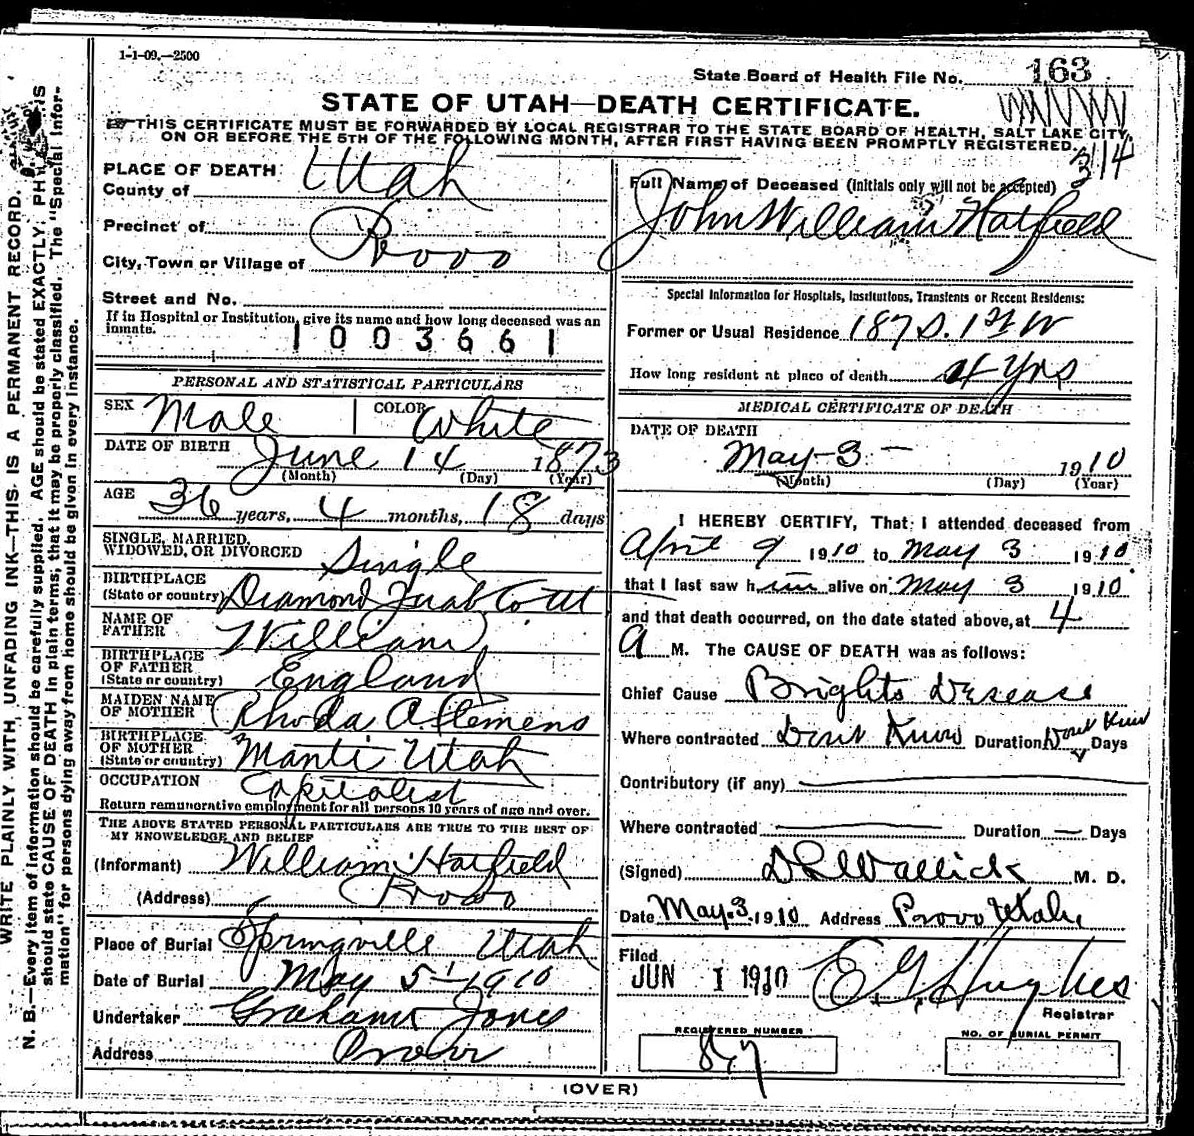 1-1-09.—2500
State Board of Health File No. 163
STATE OF UTAH—DEATH CERTIFICATE.
THIS CERTIFICATE MUST BE FORWARDED BY LOCAL REGISTRAR TO THE STATE BOARD OF HEALTH, SALT LAKE CITY,
ON OR BEFORE THE 5TH OF THE FOLLOWING MONTH, AFTER FIRST HAVING BEEN PROMPTLY REGISTERED.
314
PLACE OF DEATH:
County of Utah
Precinct of
Provo
City, Town or Village of
Street and No.
If in Hospital or Institution, give its name and how long deceased was an
inmate.
1003661
PERSONAL AND STATISTICAL PARTICULARS
SEX Male COLOR White
DATE OF BIRTH June 14 1873
(Month) (Day) (Year)
AGE 36 years, 4 months, 18 days
SINGLE, MARRIED,
WIDOWED, OR DIVORCED Single
BIRTHPLACE
(State or country) Diamond Juab Co Ut
NAME OF
FATHER William
BIRTHPLACE
OF FATHER
(State or country) England
MAIDEN NAME
OF MOTHER Rhoda A Clemens
BIRTHPLACE
OF MOTHER
(State or country) Manti Utah
OCCUPATION Capitalist
Return remunerative employment for all persons 10 years of age and over.
THE ABOVE STATED PERSONAL PARTICULARS ARE TRUE TO THE BEST OF
MY KNOWLEDGE AND BELIEF
(Informant) William Hatfield
(Address) Provo
Place of Burial Springville Utah
Date of Burial May 5 1910
Undertaker Graham Jones
Address Provo
Full Name of Deceased (initials only will not be accepted)
John William Hatfield
Special Information for Hospitals, Institutions, Transients or Recent Residents:
Former or Usual Residence 187 S. 1st W
How long resident at place of death 4 yrs
MEDICAL CERTIFICATE OF DEATH
DATE OF DEATH
May 3 — 1910
(Month) (Day) (Year)
I HEREBY CERTIFY, That I attended deceased from
April 9 1910 to May 3 1910
that I last saw him alive on May 3 1910.
and that death occurred, on the date stated above, at 4
a M. The CAUSE OF DEATH was as follows:
Chief Cause Brights Desease
Where contracted Dont Know Duration Dont Know Days
Contributory (if any)
Where contracted — Duration — Days
(Signed) D L Wallick M. D.
Date May 3, 1910 Address Provo Utah,
Filed
JUN 1 1910 E G Hughes
Registrar
REGISTERED NUMBER
NO. OF BURIAL PERMIT
(OVER)
WRITE PLAINLY WITH, UNFADING INK—THIS IS A PERMANENT RECORD.
N. B.—Every item of information should be carefully supplied. AGE should be stated EXACTLY.
should state CAUSE OF DEATH in plain terms, that it may be properly classified. The "Special Infor-
mation" for persons dying away from home should be given in every instance.